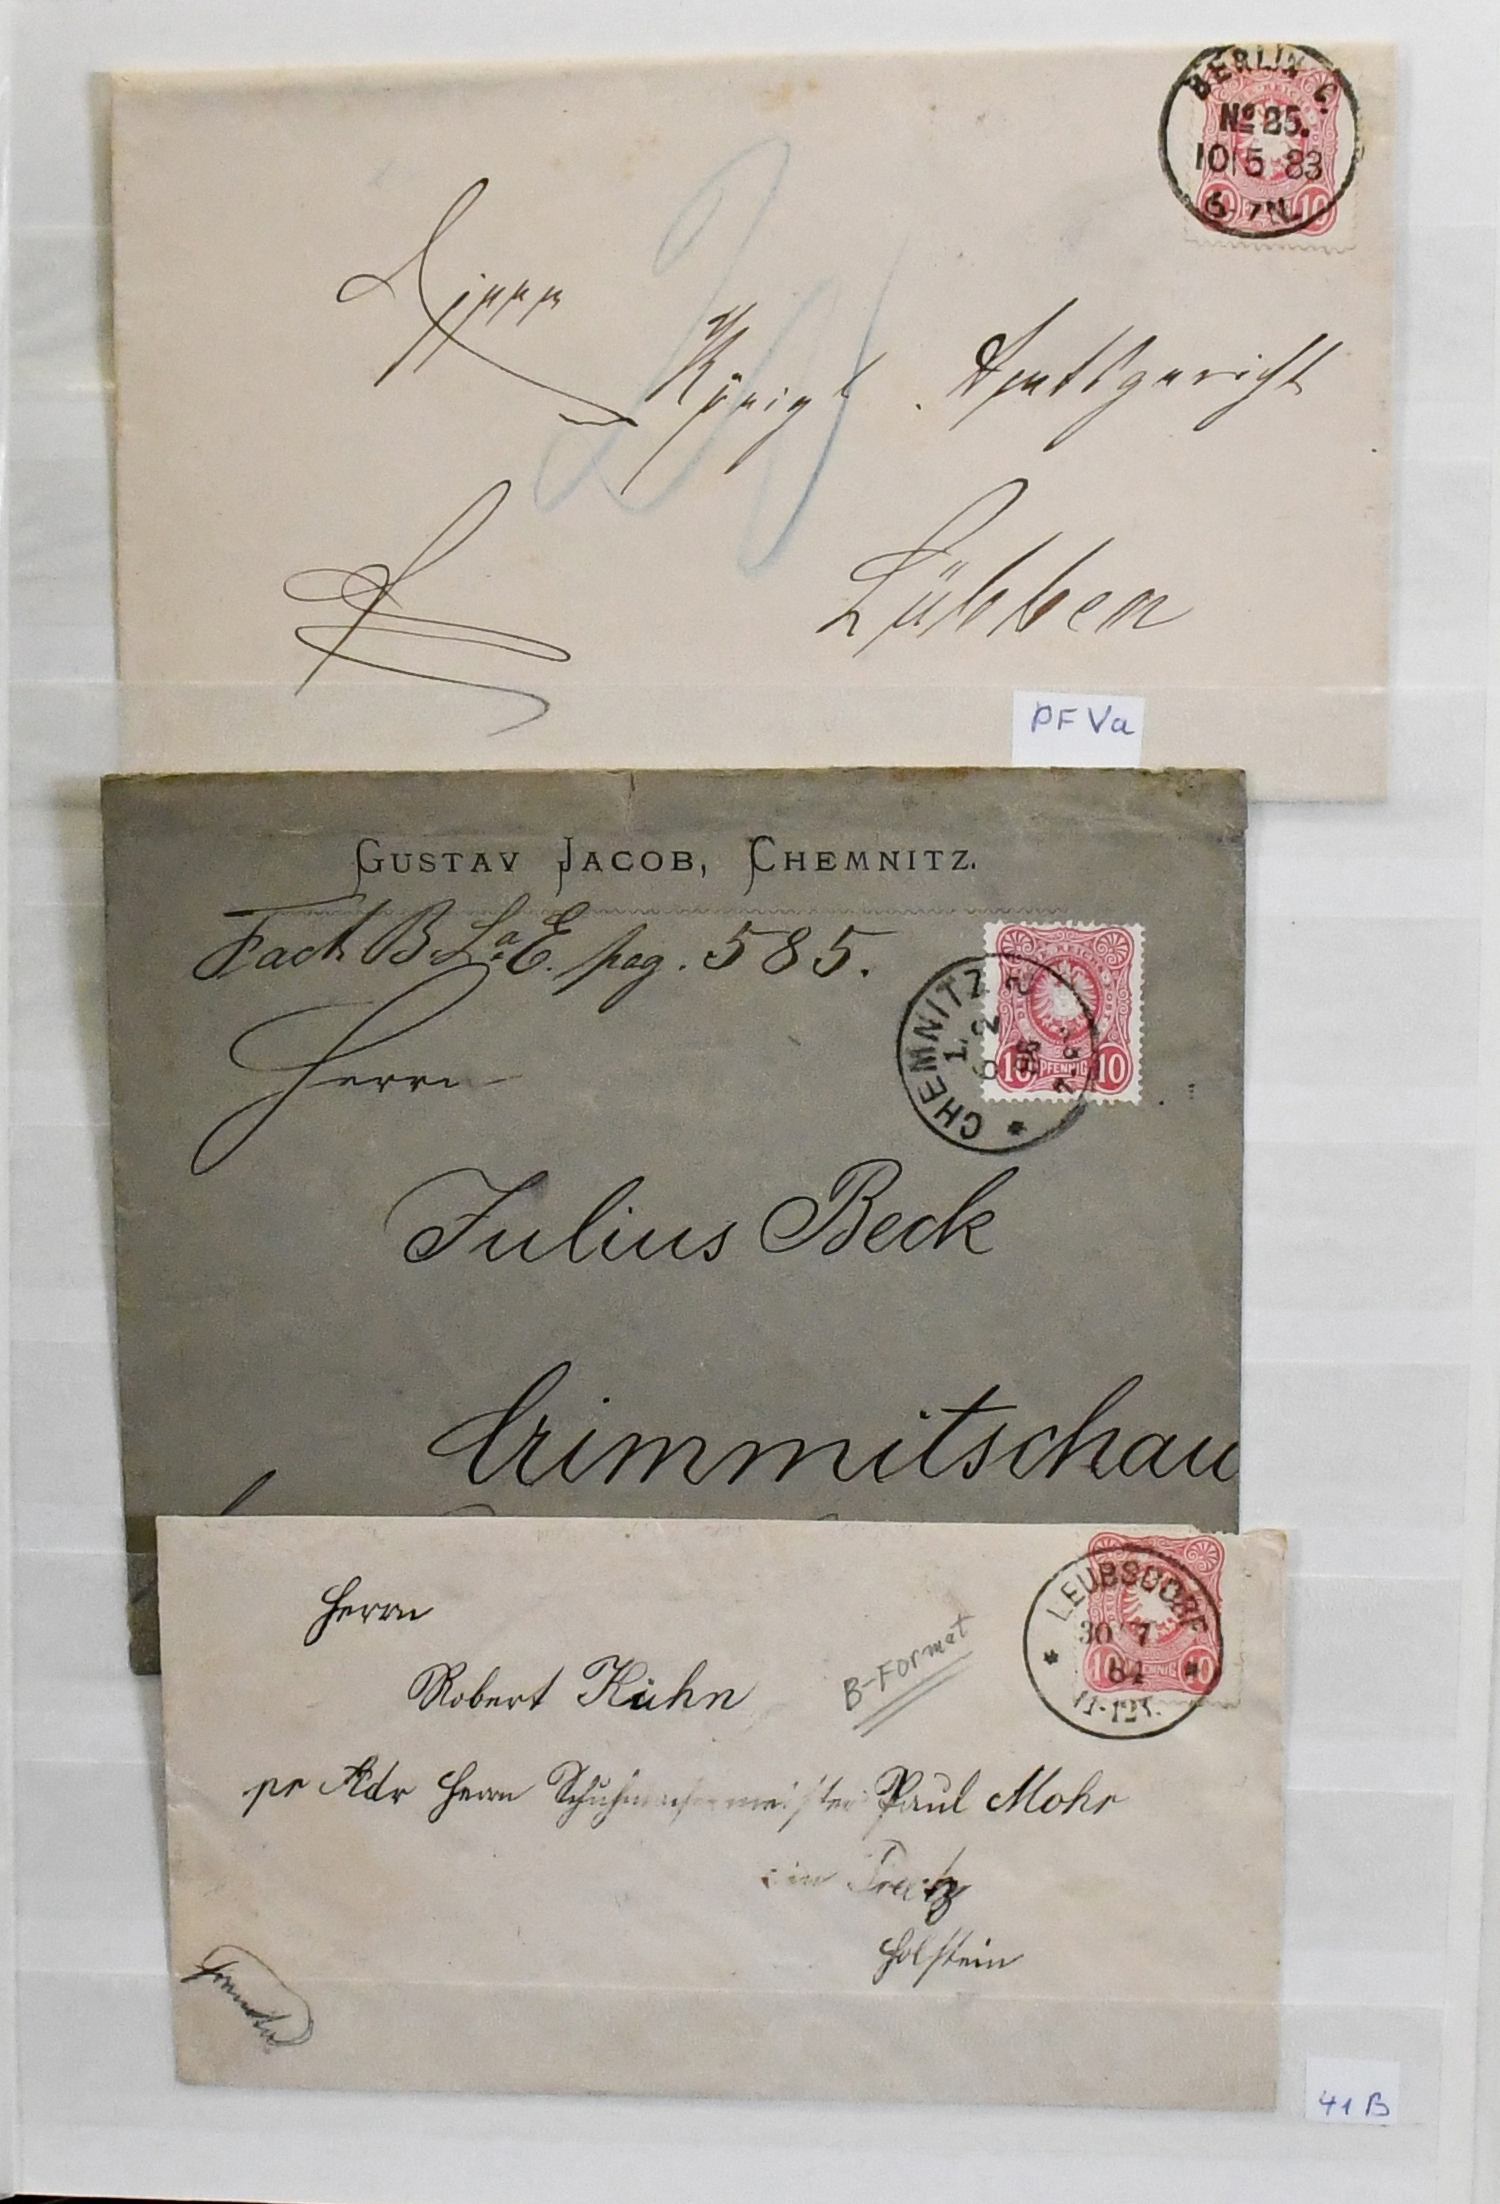 BERLIN C.
No 25.
10/5 83
6-7N.
10 10
Königl. Amtsgericht
Lübben
PF Va
GUSTAV JACOB, CHEMNITZ.
Fact. B. La. E. pag. 585.
Herrn
CHEMNITZ 2
10 PFENNIG 10
Julius Beck
Crimmitschau
LEUBSDORF
30 7
84
11-12V.
10 PFENNIG 10
Herrn
Robert Kühn
B-Format
pr Adr Herrn Schuhmachermeister Paul Mohr
in Preetz
Holstein
41 B